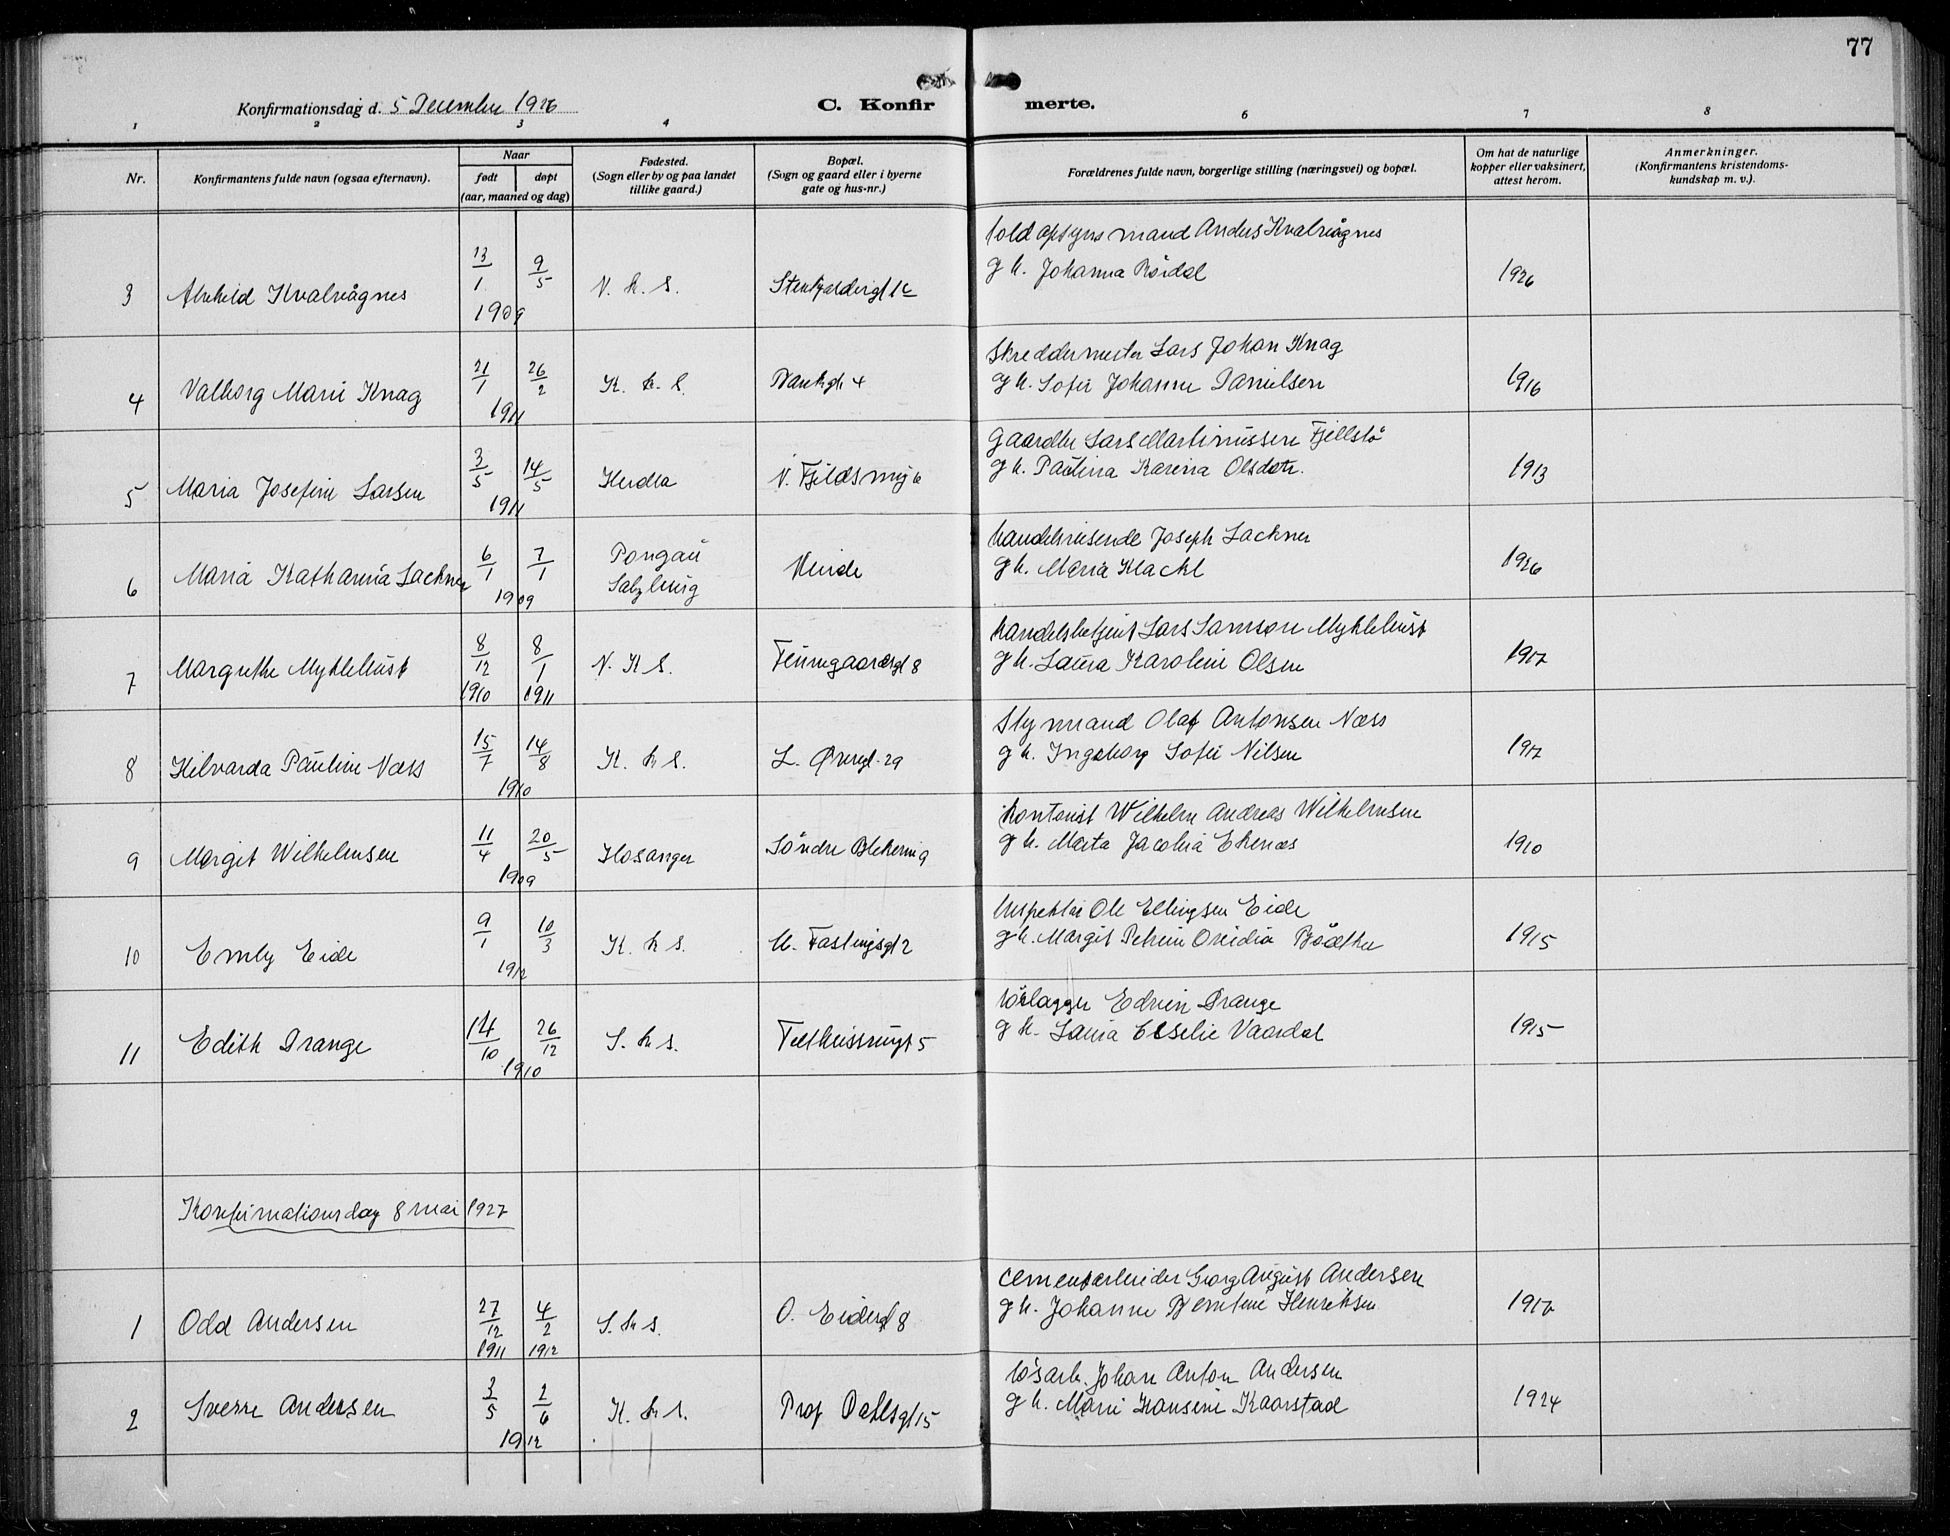 77
Konfirmationsdag d. 5 December 1926
C. Konfir merte.
1 2 3 4 6 7 8
Nr.
Konfirmantens fulde navn (ogsaa efternavn).
Naar
født
døpt
(aar, maaned og dag)
Fødested.
(Sogn eller by og paa landet
tillike gaard.)
Bopæl.
(Sogn og gaard eller i byerne
gate og hus-nr.)
Forældrenes fulde navn, borgerlige stilling (næringsvei) og bopæl.
Om hat de naturlige
kopper eller vaksinert,
attest herom.
Anmerkninger.
(Konfirmantens kristendoms-
kundskap m. v.).
3 Kvalvågnes 13/1 9/5 1909 N. k. s.
toldopsyns mand Anders Kvalvågnes
g h. Johanna
1926
4 Valborg Marie Knag 21/1 26/2 1911 K. k. s. 4
Skreddermester Lars Johan Knag
g h. Sofie Johanne Danielsen
1916
5 Maria Josefine Larsen 3/5 14/5 1911 Herdla N. Fjeldsmug 6
Gaardbr Lars Martinussen Fjellstö
g h. Paulina Karina Olsdotr.
1913
6 Maria Katharina Lackner 6/1 7/1 1909 Pongau Salzburg Minde
handelsreisende Joseph Lackner
g h. Maria Klackl
1926
7 Margrethe Myklebust 8/12 1910 8/1 1911 N. K S. Finnegaardsgt 8
handelsbetjent Lars Samson Myklebust
g h. Laura Karoline Olsen
1917
8 Hilvarda Pauline Næss 15/7 14/8 1910 K. k s. L. Øvregt. 29
Styrmand Olaf Antonsen Næss
g h. Ingeborg Sofie Nilsen
1917
9 Margit Wilhelmsen 11/4 20/5 1909 Hosanger Söndre Blekevei 9
kontorist Wilhelm Andreas Wilhelmsen
g h. Marta Jacobia Ekenæs
1910
10 Emly Eide 9/1 10/3 1912 K. k s. M. Fastingsgt 2
Inspektör Ole Ellingsen Eide
g h. Margit Petrine Ovidia
1915
11 Edith Drange 14/10 26/12 1910 S. k s. 5
rörlægger Edvin Drange
g h. Laura Elselie Vaardal
1915
Konfirmationsdag 8 mai 1927
1 Odd Andersen 27/12 1911 4/2 1912 S. k s. O. Eidesgt 8
cementarbeider Georg August Andersen
g h. Johanne Berntine Henriksen
1912
2 Sverre Andersen 3/5 2/6 1912 K. k s. Prof Dahlsgt 15
lösarb. Johan Anton Andersen
g h. Marie Hansine Kaarstad
1924